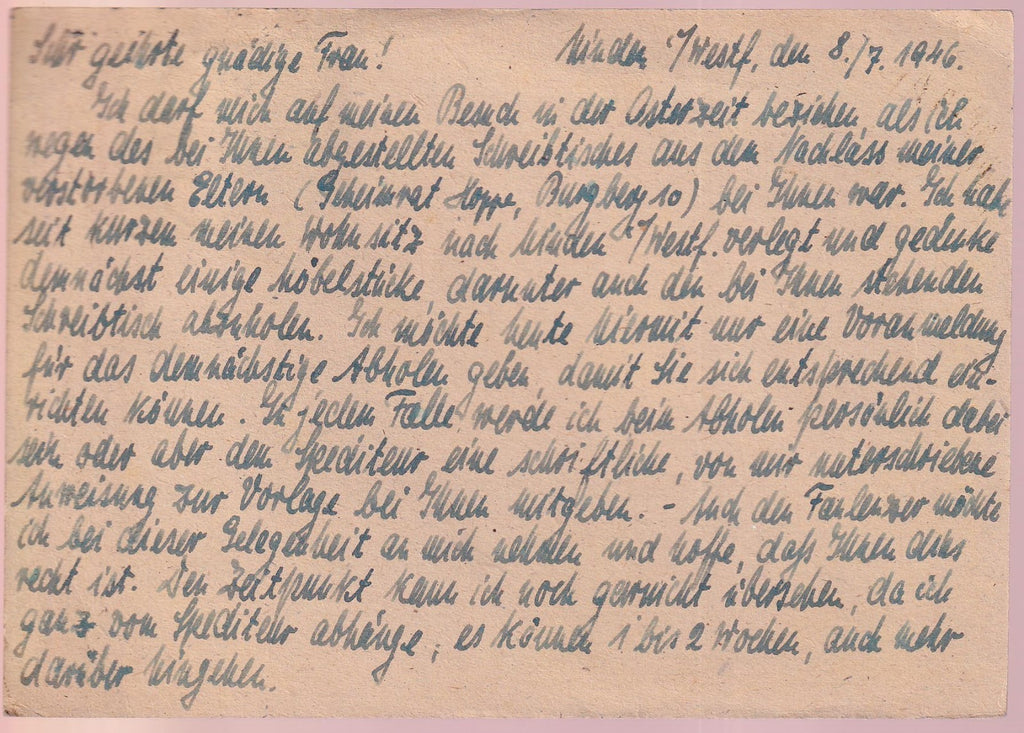 Sehr geehrte gnädige Frau! Minden i/Westf, den 8./7. 1946.
Ich darf mich auf meinen Besuch in der Osterzeit beziehen, als ich
wegen des bei Ihnen abgestellten Schreibtisches aus dem Nachlass meiner
verstorbenen Eltern (Geheimrat Hoppe, Burgberg 10) bei Ihnen war. Ich habe
seit kurzem meinen Wohnsitz nach Minden i/Westf. verlegt und gedenke
demnächst einige Möbelstücke, darunter auch den bei Ihnen stehenden
Schreibtisch abzuholen. Ich möchte heute hiermit nur eine Voranmeldung
für das demnächstige Abholen geben, damit Sie sich entsprechend ein-
richten können. In jedem Falle werde ich beim Abholen persönlich dabei
sein oder aber dem Spediteur eine schriftliche, von mir unterschriebene
Anweisung zur Vorlage bei Ihnen mitgeben. - Auch den Faulenzer möchte
ich bei dieser Gelegenheit an mich nehmen und hoffe, daß Ihnen dies
recht ist. Den Zeitpunkt kann ich noch garnicht übersehen, da ich
ganz vom Spediteur abhänge; es können 1 bis 2 Wochen, auch mehr
darüber hingehen.